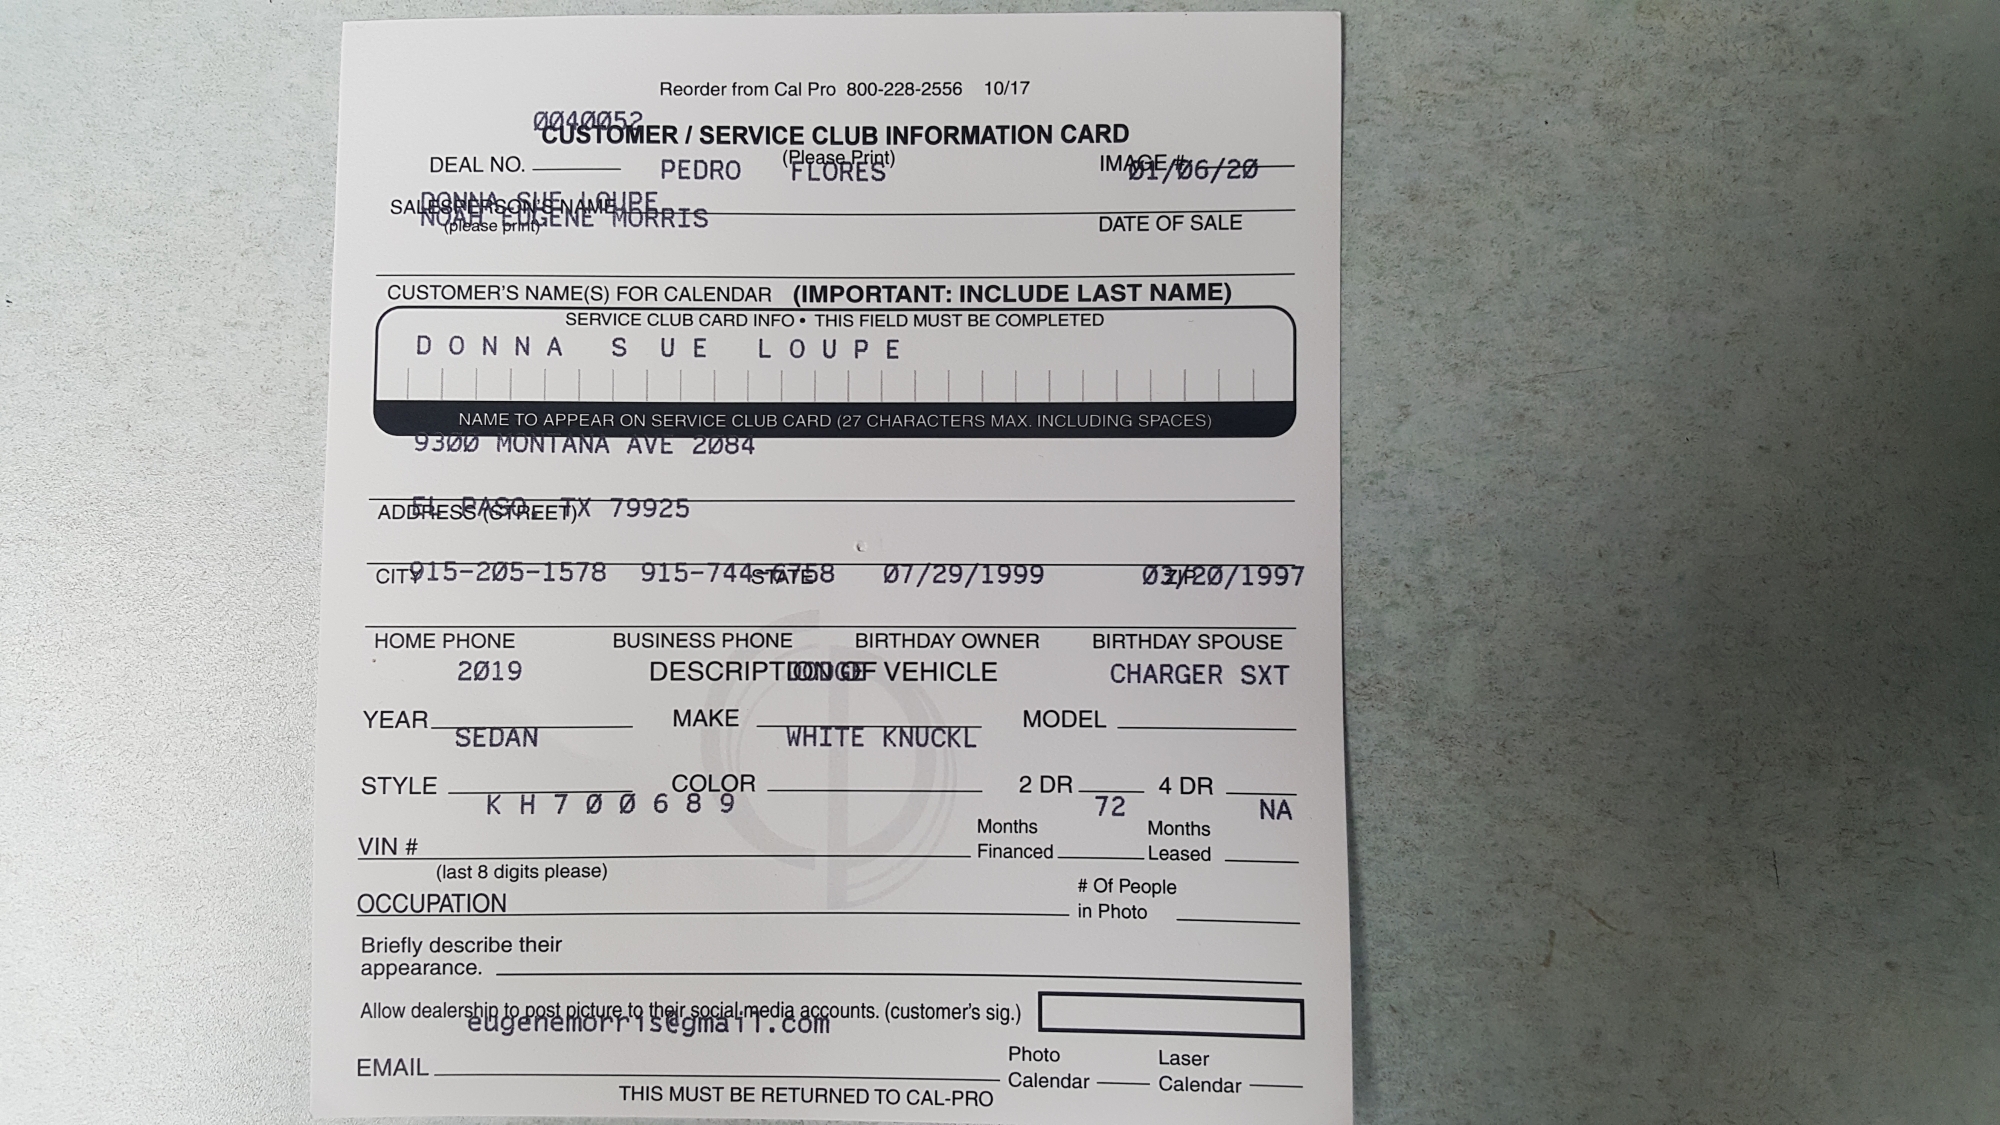 Reorder from Cal Pro 800-228-2556 10/17
0040052
CUSTOMER / SERVICE CLUB INFORMATION CARD
(Please Print)
DEAL NO. PEDRO FLORES IMAGE # 01/06/20
DONNA SUE LOUPE
SALESPERSON'S NAME
NOAH EUGENE MORRIS
(please print) DATE OF SALE
CUSTOMER'S NAME(S) FOR CALENDAR (IMPORTANT: INCLUDE LAST NAME)
SERVICE CLUB CARD INFO • THIS FIELD MUST BE COMPLETED
DONNA SUE LOUPE
NAME TO APPEAR ON SERVICE CLUB CARD (27 CHARACTERS MAX. INCLUDING SPACES)
9300 MONTANA AVE 2084
EL PASO, TX 79925
ADDRESS (STREET)
915-205-1578 915-744-6758 07/29/1999 03/20/1997
CITY STATE ZIP
HOME PHONE BUSINESS PHONE BIRTHDAY OWNER BIRTHDAY SPOUSE
DESCRIPTION OF VEHICLE
2019 DODGE CHARGER SXT
YEAR MAKE MODEL
SEDAN WHITE KNUCKL
STYLE COLOR 2 DR 4 DR
KH700689 72 NA
VIN # Months Financed Months Leased
(last 8 digits please)
OCCUPATION # Of People in Photo
Briefly describe their
appearance.
Allow dealership to post picture to their social media accounts. (customer's sig.)
eugenemorris@gmail.com
EMAIL Photo Calendar Laser Calendar
THIS MUST BE RETURNED TO CAL-PRO